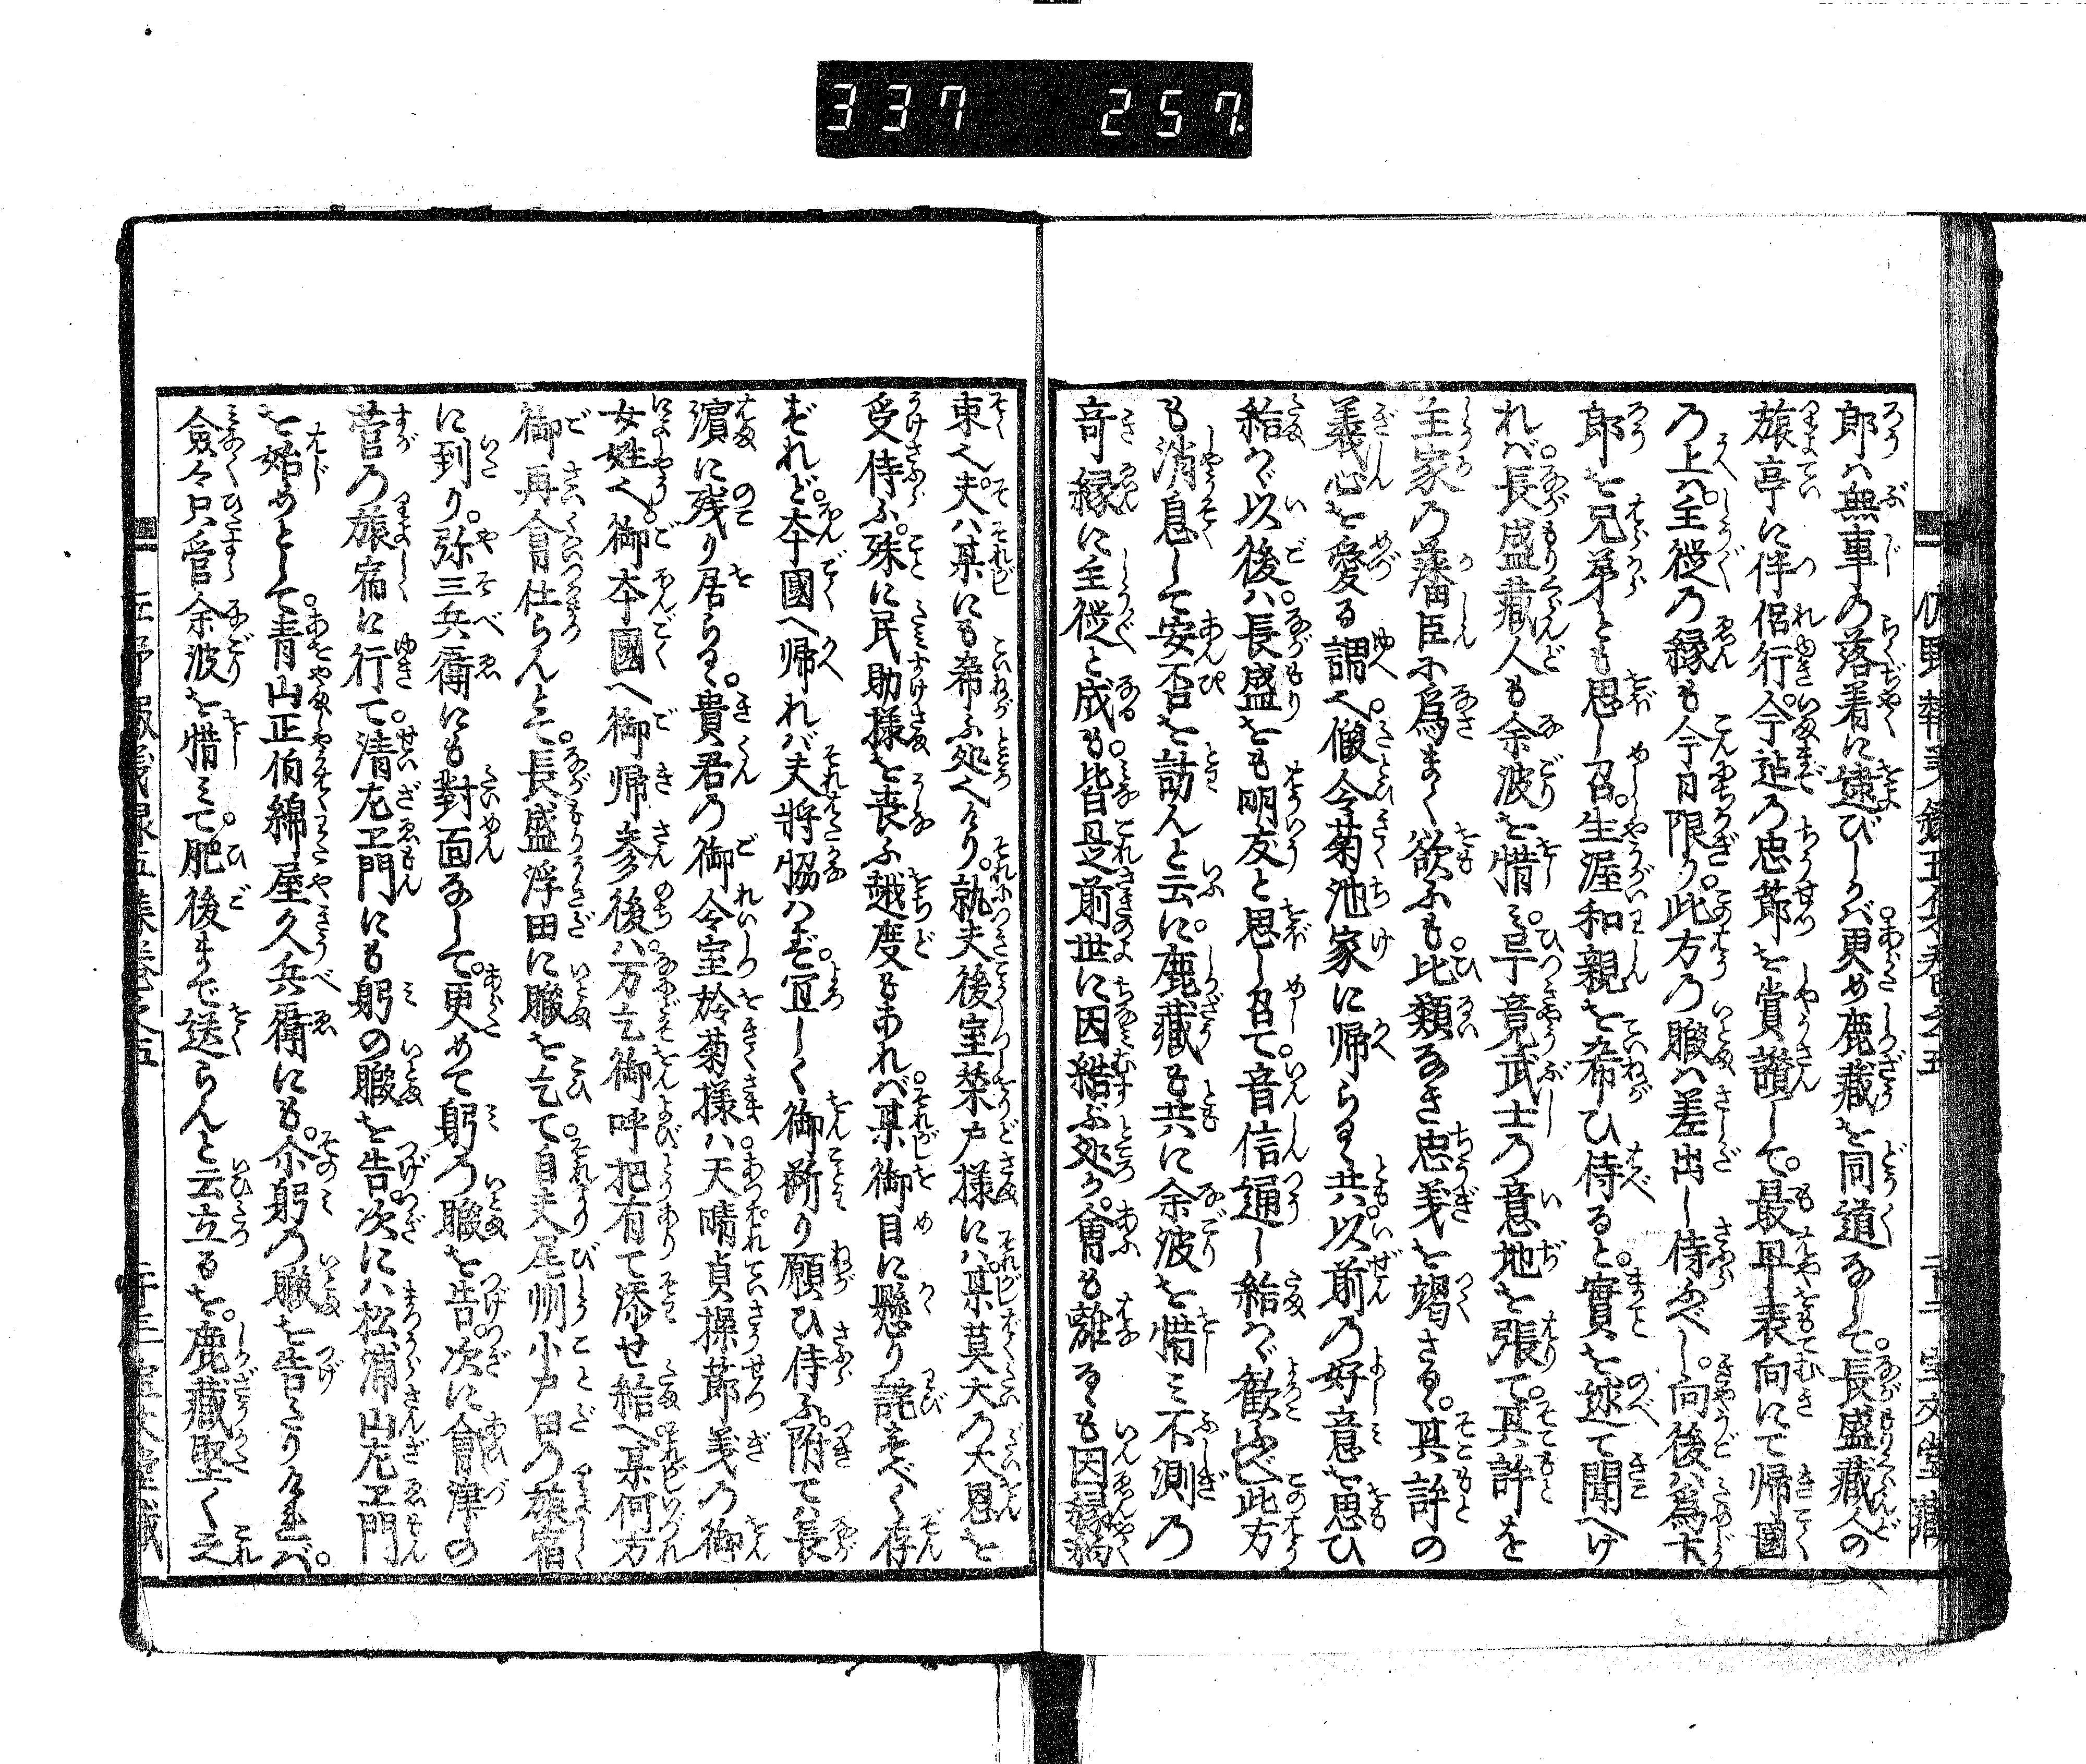 337 257
郎ハ無事の落着に逮びしかバ更め鹿藏を同道なして。長盛藏人の
旅亭に伴侶行。今迠の忠莭を賞讃して。最早表向にて帰國
の上ハ。主從の縁も今日限り。此方の暇ハ差出し侍ふべし。向後ハ為卞
郎を兄弟とも思し召。生涯和親を希ひ侍ると。實を述て聞へけ
れバ。長盛藏人も余波を惜ミ。畢竟武士の意地を張て。其許を
主家の藩臣に為まく欲ふも。比類なき忠義を竭さるゝ。其許の
義心を愛る謂へ。假令菊池家に帰らるゝ共。以前の好意を思ひ
給ハゞ以後ハ。長盛をも朙友と思し召て。音信通し給ハゞ歓ふべし此方
も消息して安否を訪んと云に。鹿藏も共に余波を惜ミ不測の
竒縁に主從と成も。皆是前世に因結ぶ処か。會も離るゝも因縁約
束へ。夫ハ某にも希ふ処へなり。就夫後室榮戸様にハ。某莫大の大恩を
受侍ふ。殊に民助様を喪ふ越度もあれバ。某御目に懸り詫をべく存
ずれど。本國へ帰れバ夫將恊ハず。宜しく御断り願ひ侍ふ。附てハ長
濵に残り居らるゝ。貴君の御令室於菊様ハ。天晴貞操莭義の御
女姓へ。御本國へ御帰参後ハ。万乞御呼把有て添せ給へ某何方
御再會仕らんとて。長盛浮田に暇を乞て。自夫尾州小戸田の旅宿
に到り。弥三兵衞にも對面なして。更めて躬の暇を告。次に會津の
菅の旅宿に行て。清左エ門にも躬の暇を告次にハ松浦山左エ門
を始めとして。青山正伯綿屋久兵衞にも。余躬の暇を告たりけれバ。
僉々只管余波を惜ミて。肥後まで送らんと云立るを。鹿藏堅く之